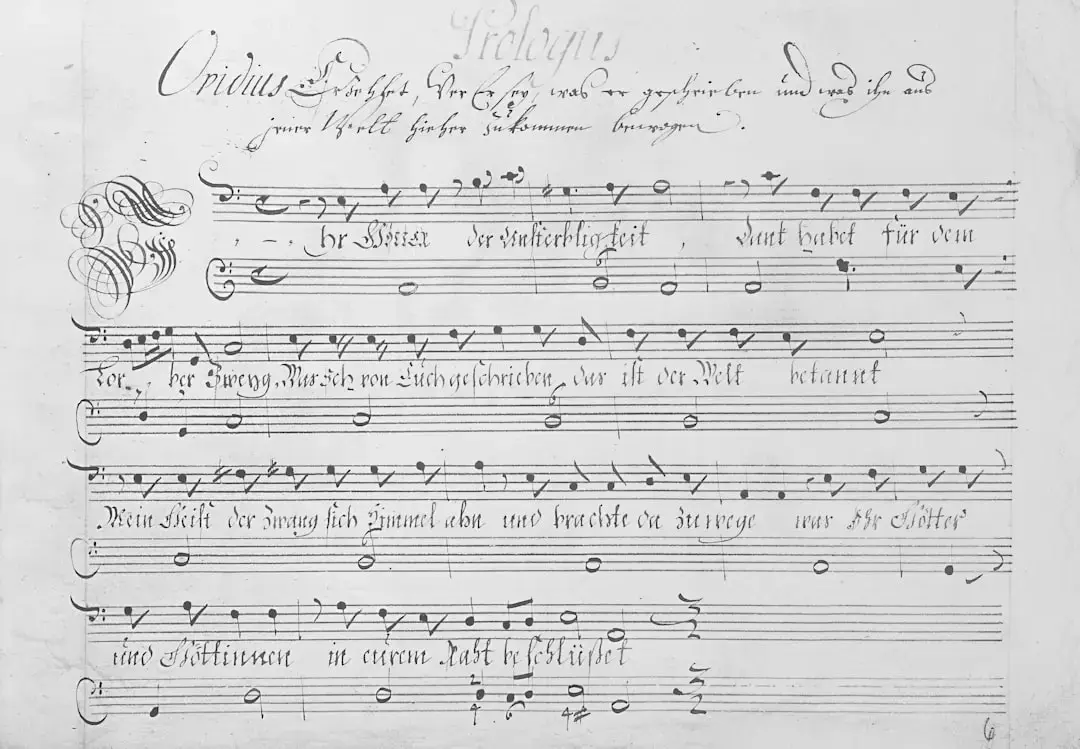 Prologus
Ovidius Erzehlet, Wer Er sey, was er geschrieben und was ihn aus
jener Welt hieher zukommen bewogen.
Ihr Götter der Unsterbligkeit, Dank habet für dem
6
Lor- ber Zweyg, Was Ich von Euch geschrieben, das ist der Welt bekannt
6
Mein Geist der zwang sich Himmel ahn und brachte da zuwege was Ihr Götter
6
und Göttinnen in eurem Raht beschlüßet
3 2
2 4 6 4# 3 2
6